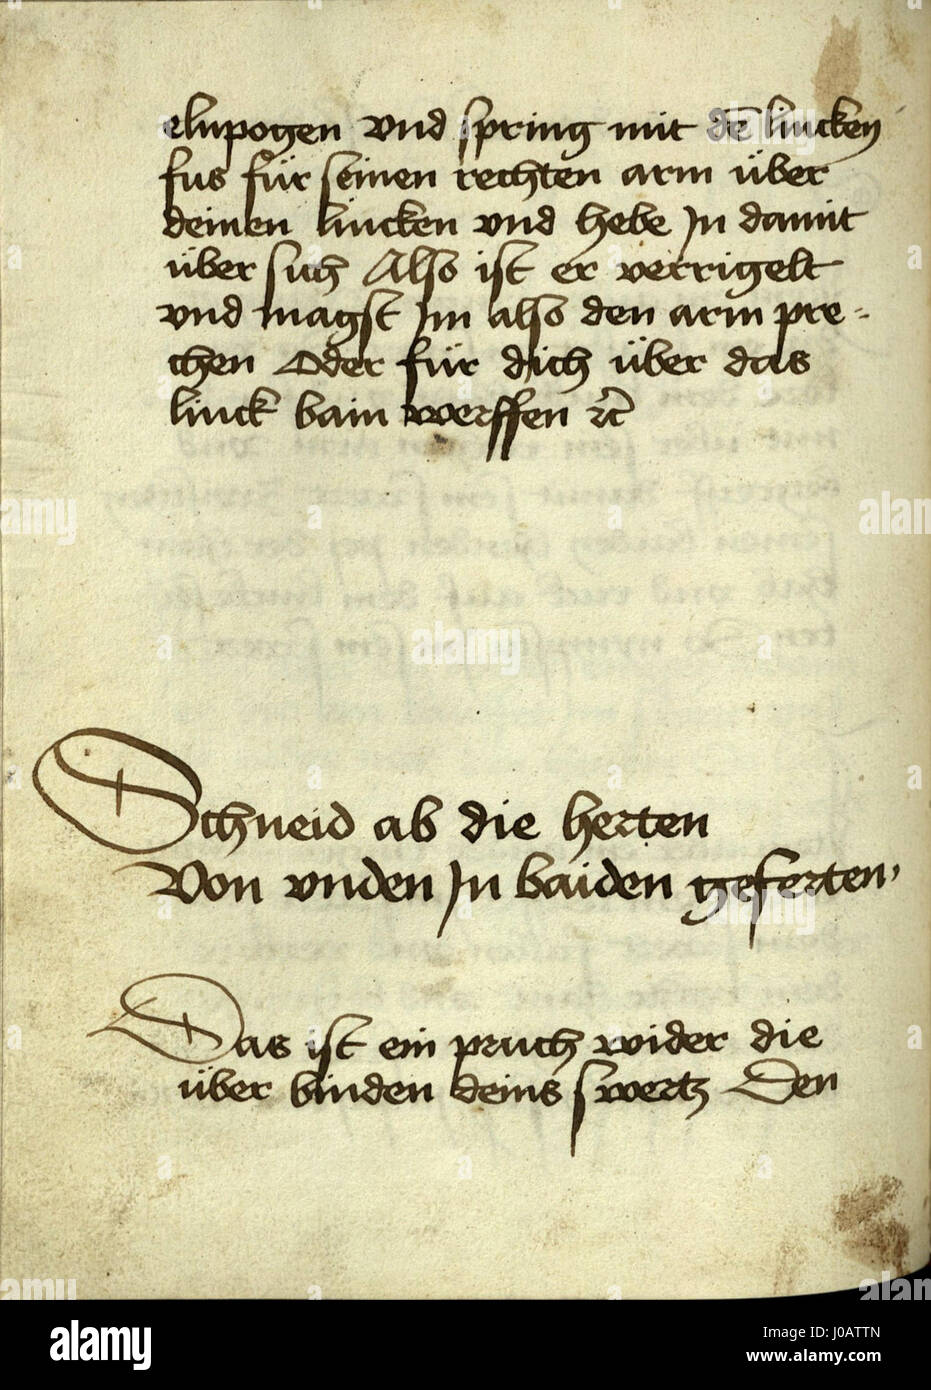 elnpogen vnd spring mit dē lincken
fus für seinen rechten arm über
deinen lincken vnd hebe Jn damit
über sich Also ist er verrigelt
vnd magst Jm also den arm pre-
chen Oder für dich über das
linck bain werffen ꝛc̃
Schneid ab die herten
Von vnden Jn baiden geferten
Das ist ein pruch wider die
über binden deins swertz Den
alamy stock photo
J0ATTN
www.alamy.com